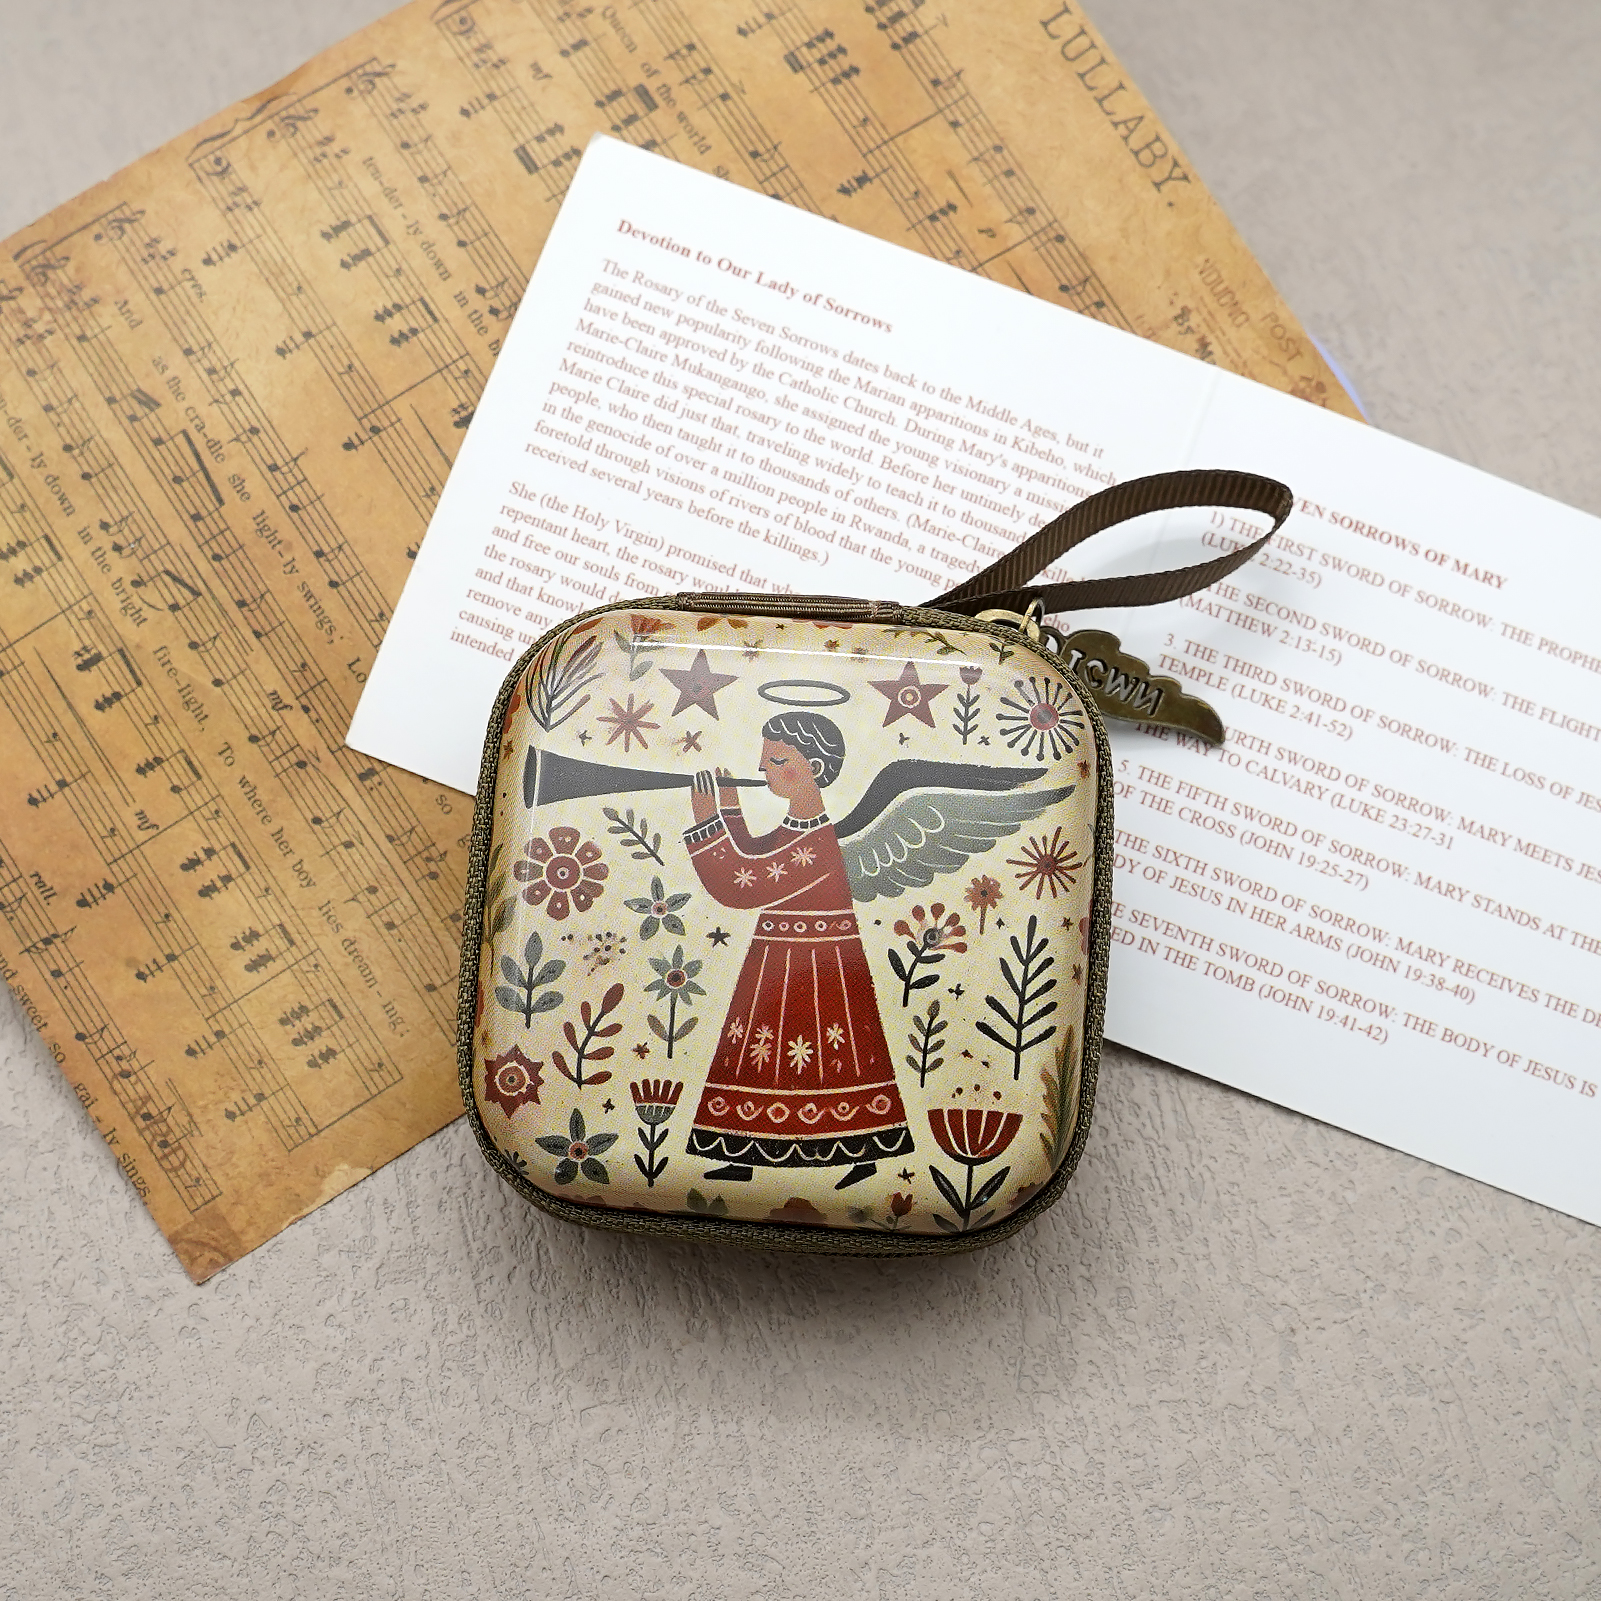 LULLABY.
Queen of the world
mf
p
ten-der-ly down in the b
cres.
And as the cra-dle she light-ly swings,
der-ly down in the bright fire-light,
mf
To where her boy lies dream-ing;
mf
rall.
nd sweet so
gai-ly sings
POST
Devotion to Our Lady of Sorrows
The Rosary of the Seven Sorrows dates back to the Middle Ages, but it
gained new popularity following the Marian apparitions in Kibeho, which
have been approved by the Catholic Church. During Mary's apparitions
Marie-Claire Mukangango, she assigned the young visionary a missi
reintroduce this special rosary to the world. Before her untimely de
Marie Claire did just that, traveling widely to teach it to thousand
people, who then taught it to thousands of others. (Marie-Claire killed
in the genocide of over a million people in Rwanda, a tragedy
foretold through visions of rivers of blood that the young p
received several years before the killings.)
She (the Holy Virgin) promised that whe
repentant heart, the rosary woul
and free our souls from
the rosary would d
and that knowl
remove any
causing un
intended
EN SORROWS OF MARY
1) THE FIRST SWORD OF SORROW: THE PROPHE
(LUKE 2:22-35)
THE SECOND SWORD OF SORROW: THE FLIGHT
(MATTHEW 2:13-15)
3. THE THIRD SWORD OF SORROW: THE LOSS OF JES
TEMPLE (LUKE 2:41-52)
URTH SWORD OF SORROW: MARY MEETS JES
THE WAY TO CALVARY (LUKE 23:27-31
5. THE FIFTH SWORD OF SORROW: MARY STANDS AT THE
OF THE CROSS (JOHN 19:25-27)
THE SIXTH SWORD OF SORROW: MARY RECEIVES THE DE
DY OF JESUS IN HER ARMS (JOHN 19:38-40)
E SEVENTH SWORD OF SORROW: THE BODY OF JESUS IS
ED IN THE TOMB (JOHN 19:41-42)